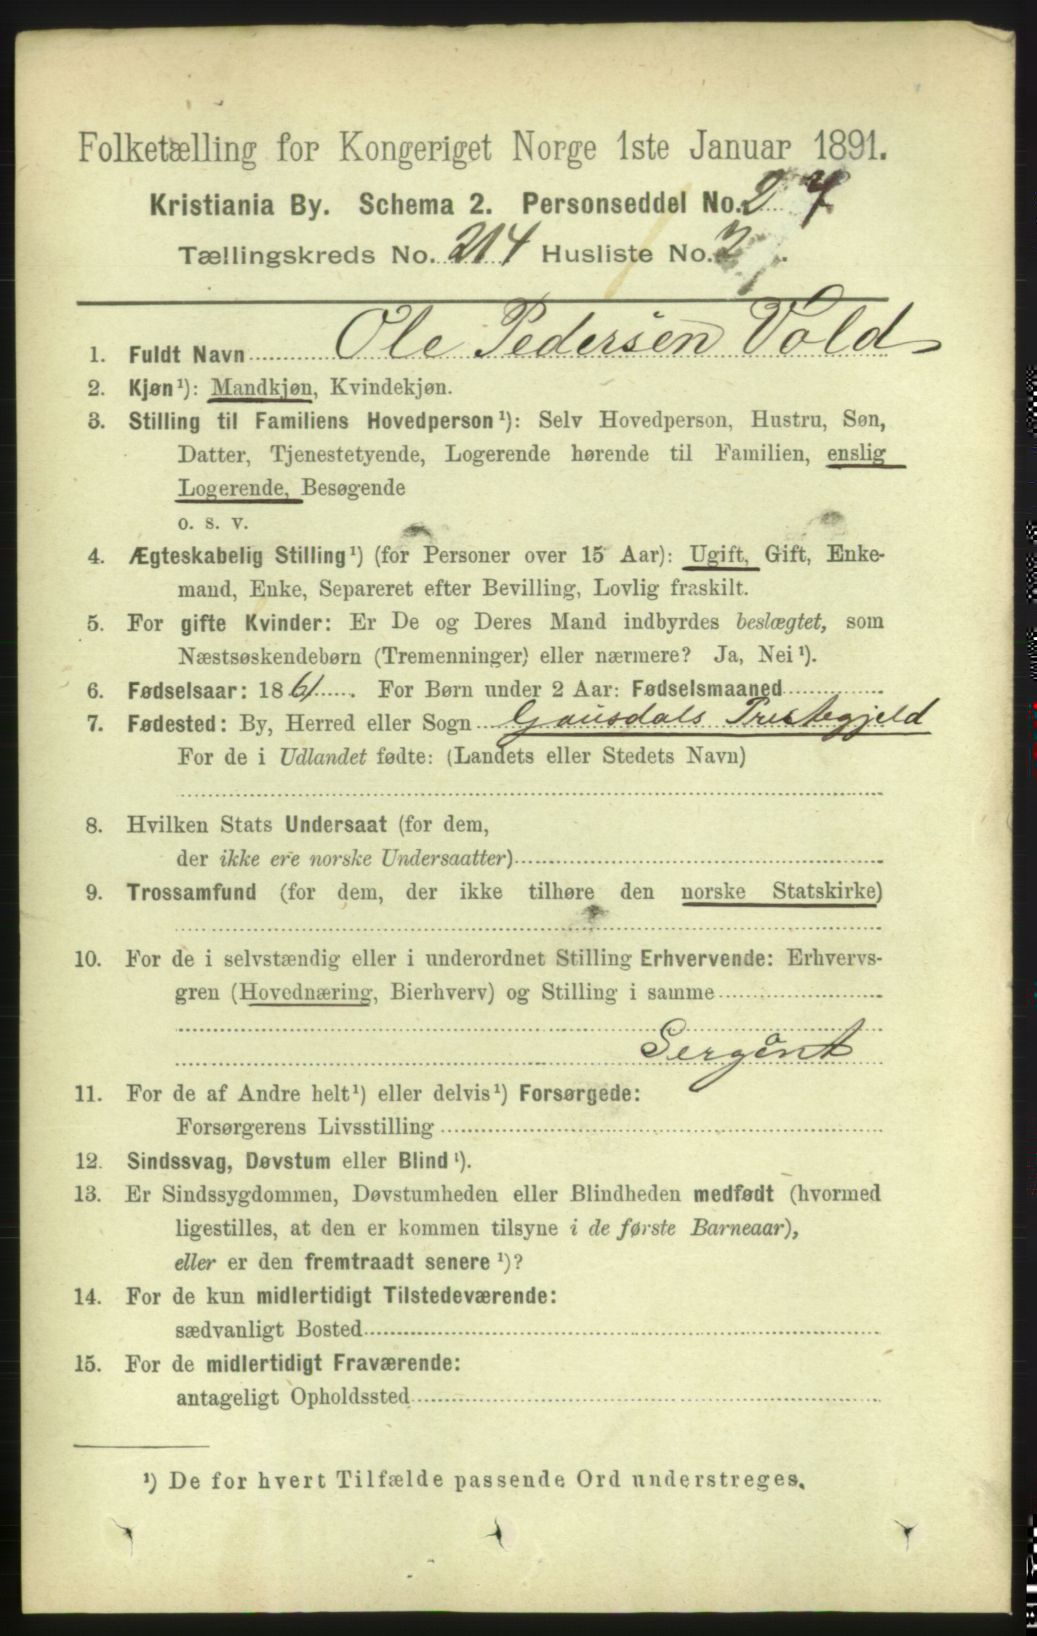 Folketælling for Kongeriget Norge 1ste Januar 1891.
Kristiania By. Schema 2. Personseddel No. 27
Tællingskreds No. 214 Husliste No. 2
1. Fuldt Navn Ole Pedersen Vold
2. Kjøn¹): Mandkjøn, Kvindekjøn.
3. Stilling til Familiens Hovedperson¹): Selv Hovedperson, Hustru, Søn,
Datter, Tjenestetyende, Logerende hørende til Familien, enslig
Logerende, Besøgende
o. s. v.
4. Ægteskabelig Stilling¹) (for Personer over 15 Aar): Ugift, Gift, Enke-
mand, Enke, Separeret efter Bevilling, Lovlig fraskilt.
5. For gifte Kvinder: Er De og Deres Mand indbyrdes beslægtet, som
Næstsøskendebørn (Tremenninger) eller nærmere? Ja, Nei¹).
6. Fødselsaar: 1861. For Børn under 2 Aar: Fødselsmaaned
7. Fødested: By, Herred eller Sogn Gausdals Prestegjeld
For de i Udlandet fødte: (Landets eller Stedets Navn)
8. Hvilken Stats Undersaat (for dem,
der ikke ere norske Undersaatter)
9. Trossamfund (for dem, der ikke tilhøre den norske Statskirke)
10. For de i selvstændig eller i underordnet Stilling Erhvervende: Erhvervs-
gren (Hovednæring, Bierhverv) og Stilling i samme
Sergent
11. For de af Andre helt¹) eller delvis¹) Forsørgede:
Forsørgerens Livsstilling
12. Sindssvag, Døvstum eller Blind¹).
13. Er Sindssygdommen, Døvstumheden eller Blindheden medfødt (hvormed
ligestilles, at den er kommen tilsyne i de første Barneaar),
eller er den fremtraadt senere¹)?
14. For de kun midlertidigt Tilstedeværende:
sædvanligt Bosted
15. For de midlertidigt Fraværende:
antageligt Opholdssted
¹) De for hvert Tilfælde passende Ord understreges.